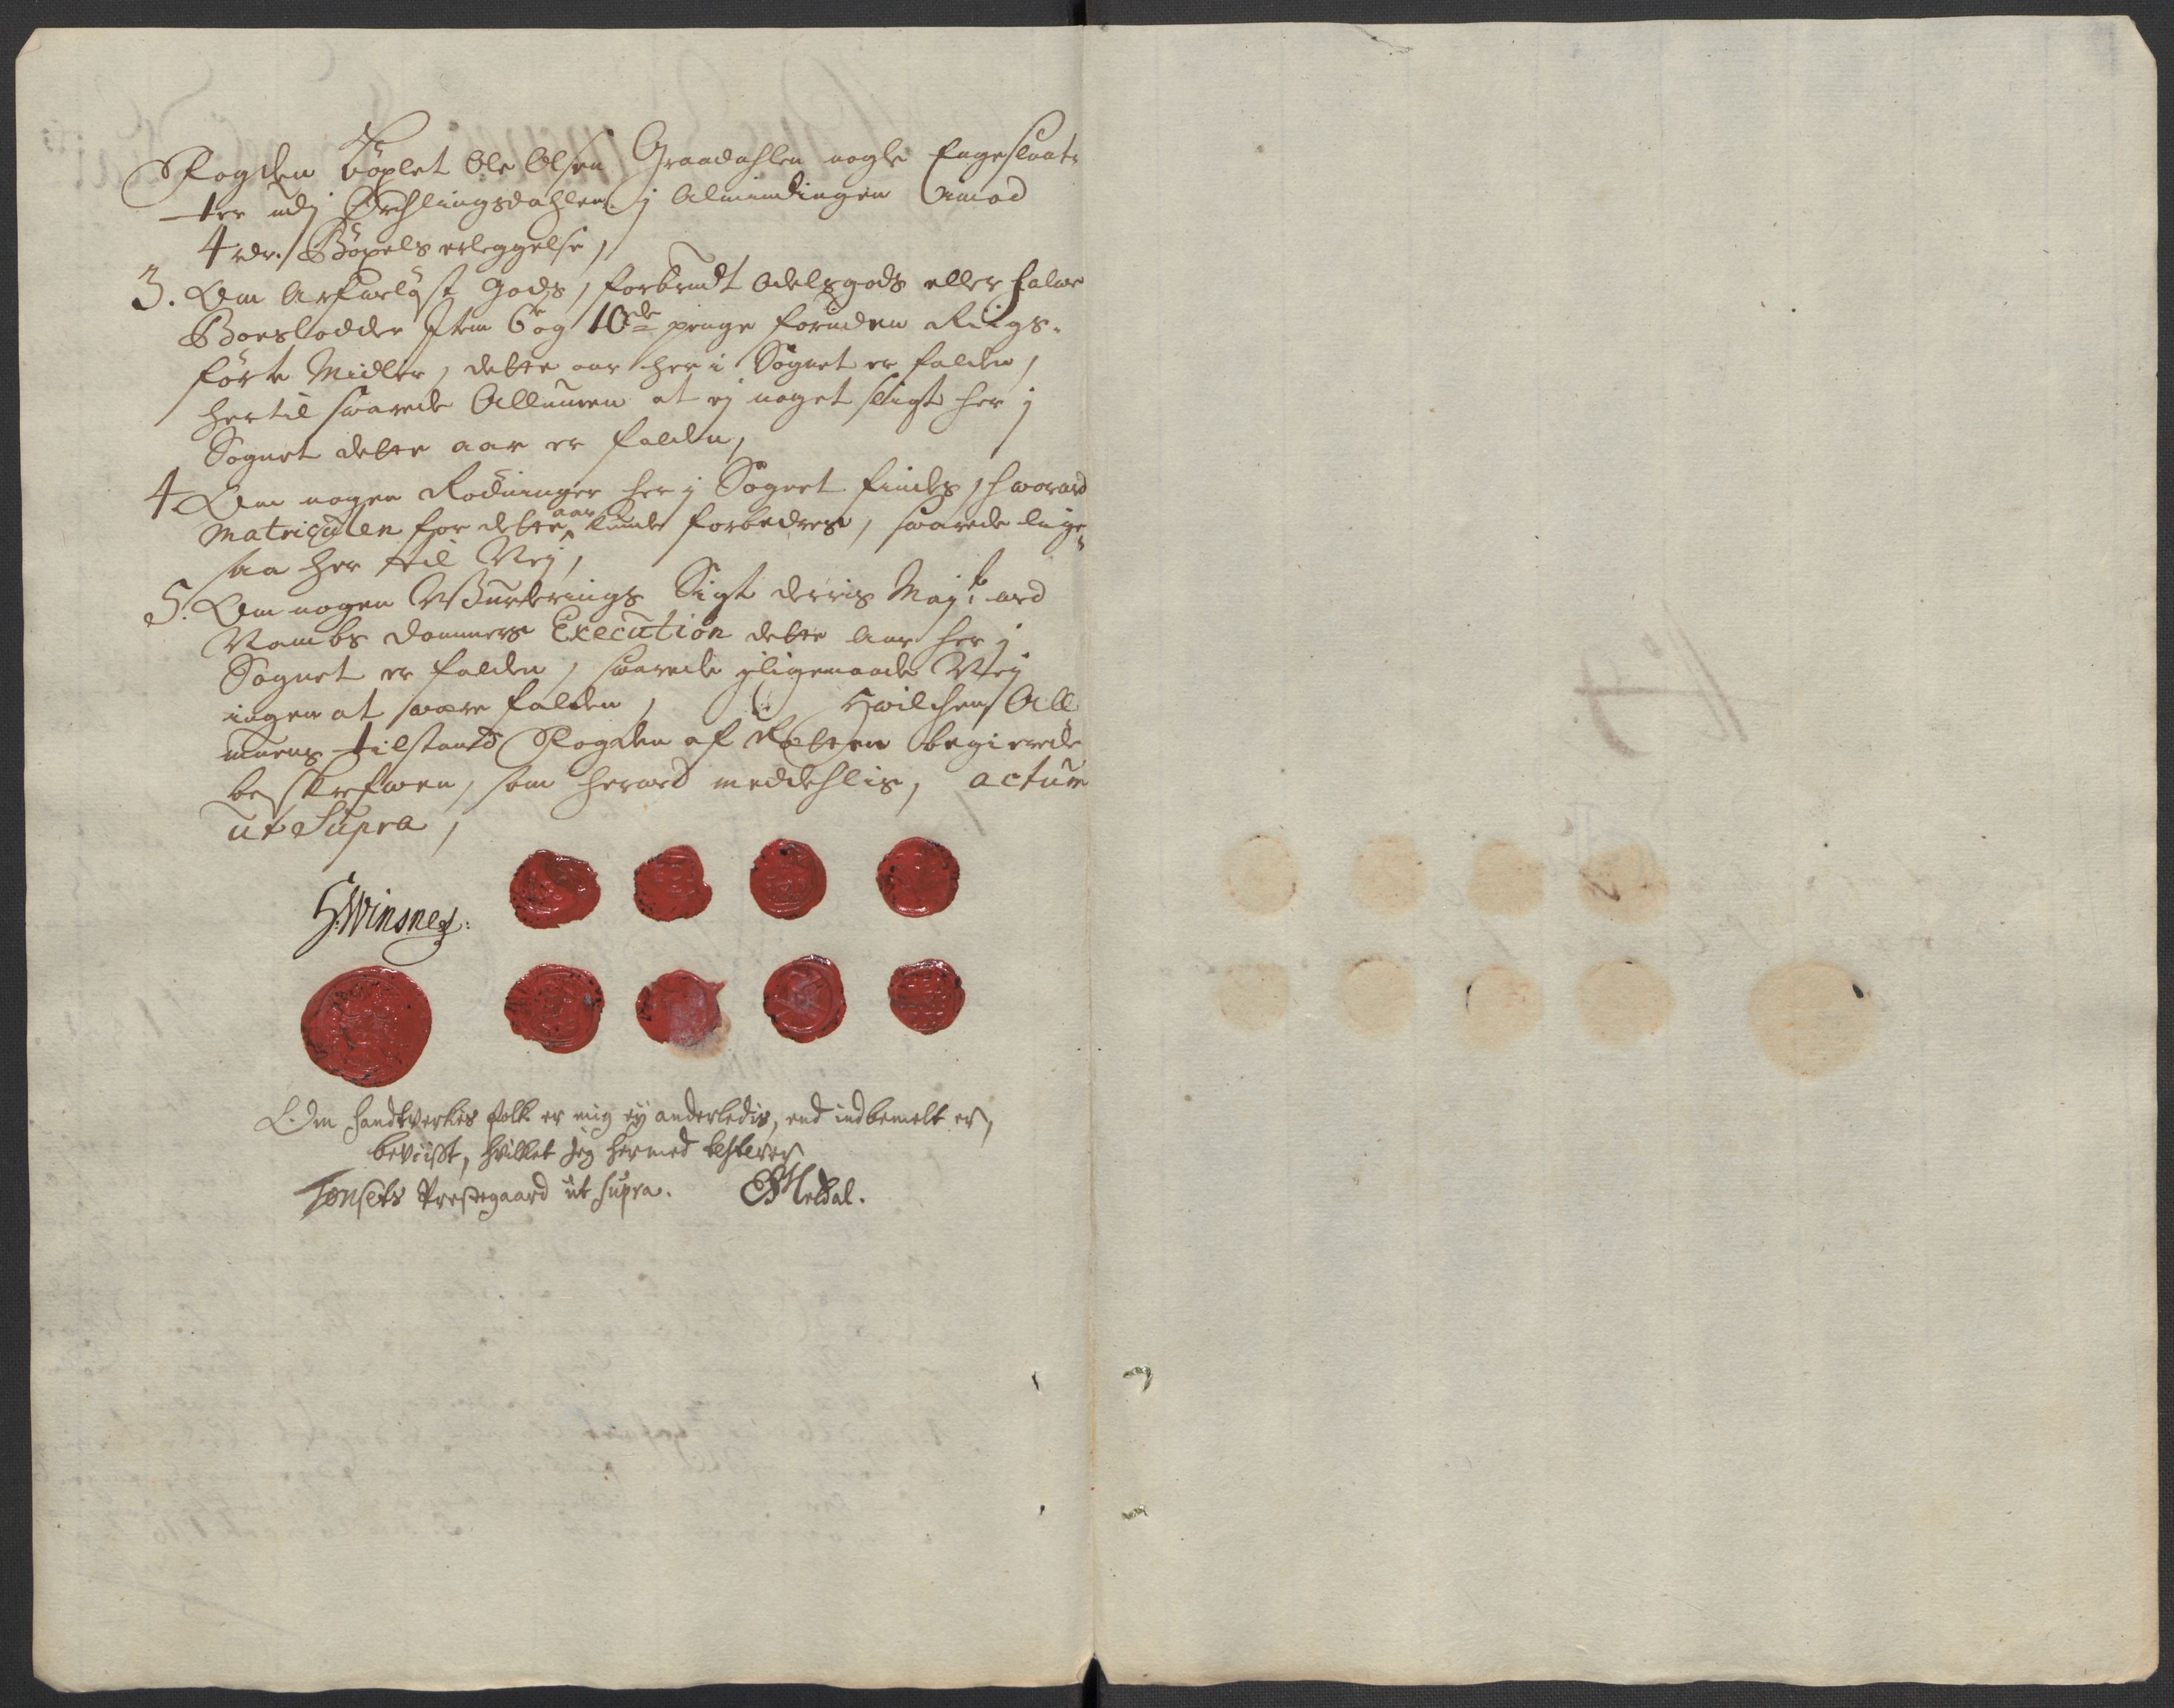 Fogden böxlet Ole Olsen Graadahlen nogle Engeslaat-
ter udj Orchlingsdahlen j Almindingen imod
4 rdr. Böxels erleggelse,
3. Om Arfueløst Gods, forbrudt Odelsgods eller halve
Boeslodder Item 6te og 10de penge foruden Riigs-
førte Midler, dette aar her i Sognet er falden,
hertil svarede Allmuen at ej noget sligt her j
Sognet dette aar er falden,
4 Om nogen Rødninger her j Sognet findes, hvorved
Matriculen for dette aar kunde forbedres, svarede lige-
saa her til Nej,
5. Om nogen Vurderings Sigt derris Mayts: ved
Dommers Execution dette Aar her j
Sognet er falden, svarede jligemaade Nej
ingen at være falden, Hvilchen All
muens tilstand Fogden af Retten begierede
beskrefwen, som herved meddehlis, actum
ut Supra,
H: Winsnes:
Om handtverkes folk er mig ey anderledis, end indbemelt er,
beviist, hvilket jeg hermed testerer
Tønsets Prestegaard ut supra. Meldal.